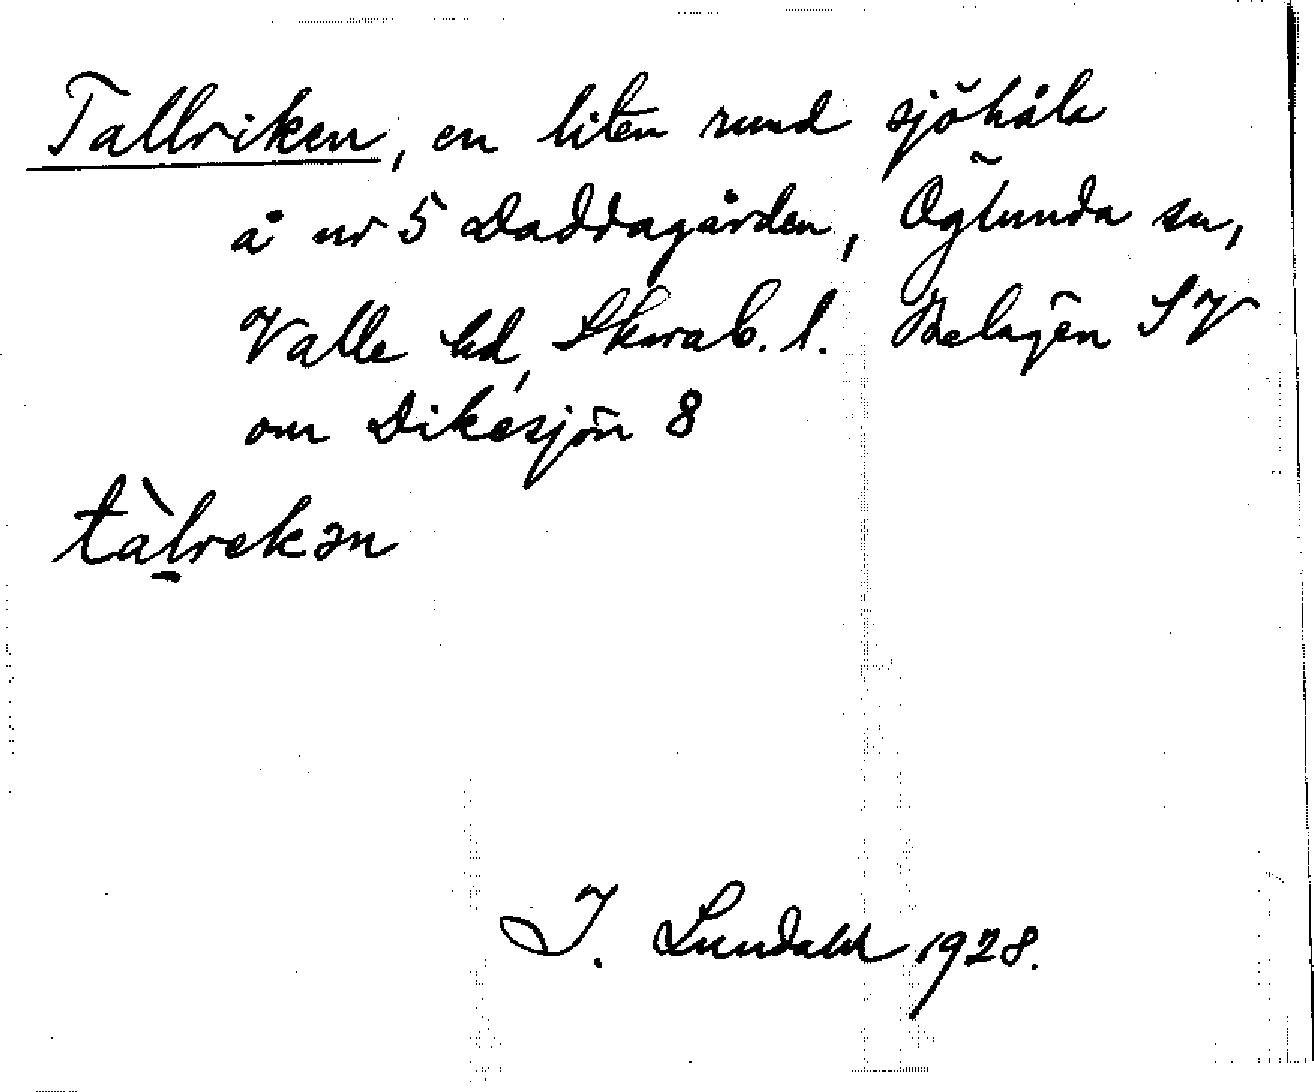 Tallriken, en liten rund sjöhåla
å nr 5 Daddagården, Öglunda sn,
Valle hd, Skarab. l. Belägen SV
om Dikesjön 8
tàlrekən
I. Lundahl 1928.